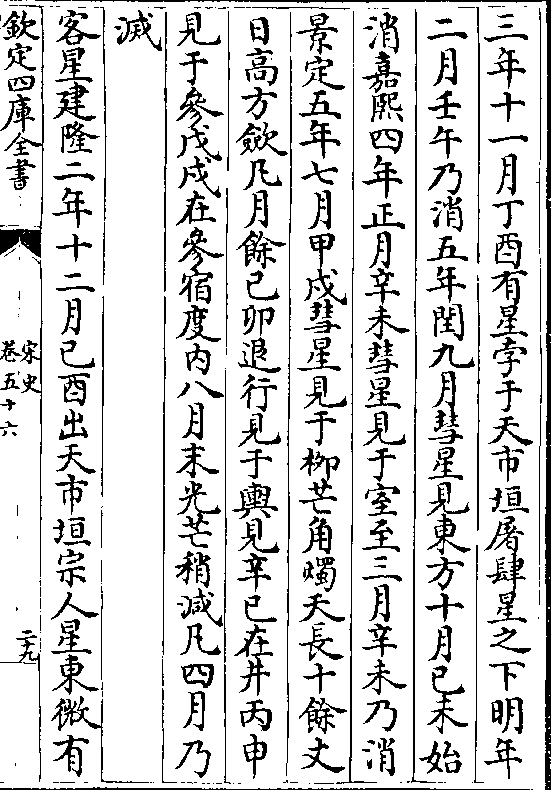 三年十一月丁酉有星孛于天市垣屠肆星之下明年
二月壬午乃消五年閏九月彗星見東方十月己未始
消嘉熙四年正月辛未彗星見于室至三月辛未乃消
景定五年七月甲戍彗星見于栁芒角燭天長十餘丈
日高方歛凡月餘己卯退行見于輿見辛已在井丙申
見于參戊戍在參宿度內八月末光芒稍減凡四月乃
滅
客星建隆二年十二月己酉出天市垣宗人星東微有
欽定四庫全書
宋史
卷五十六
二十九